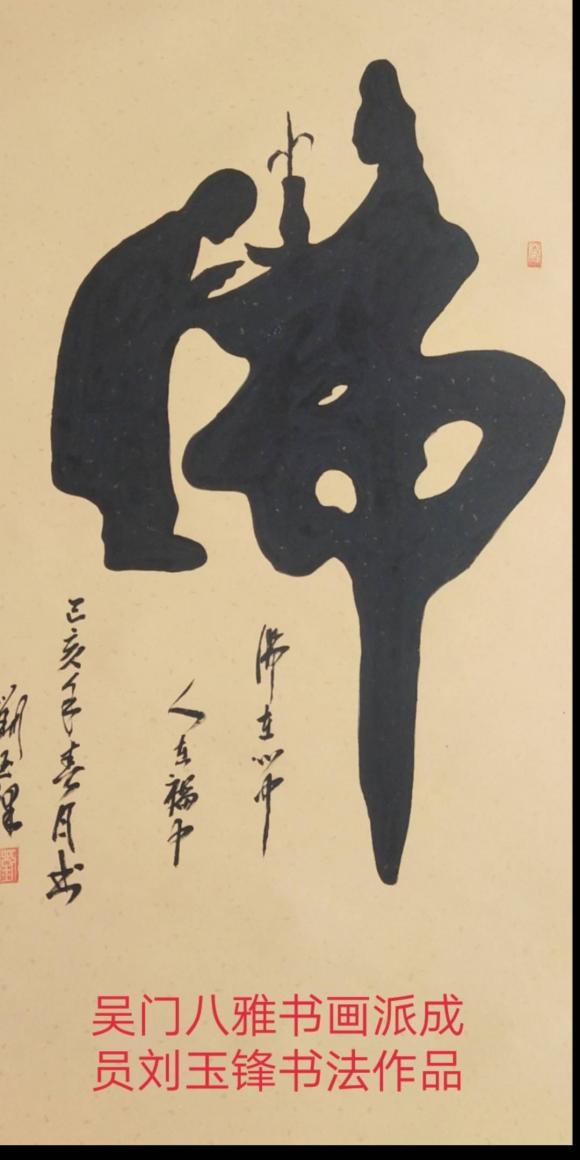 佛
佛在心中
人在福中
己亥年春月书
吴门八雅书画派成
员刘玉锋书法作品